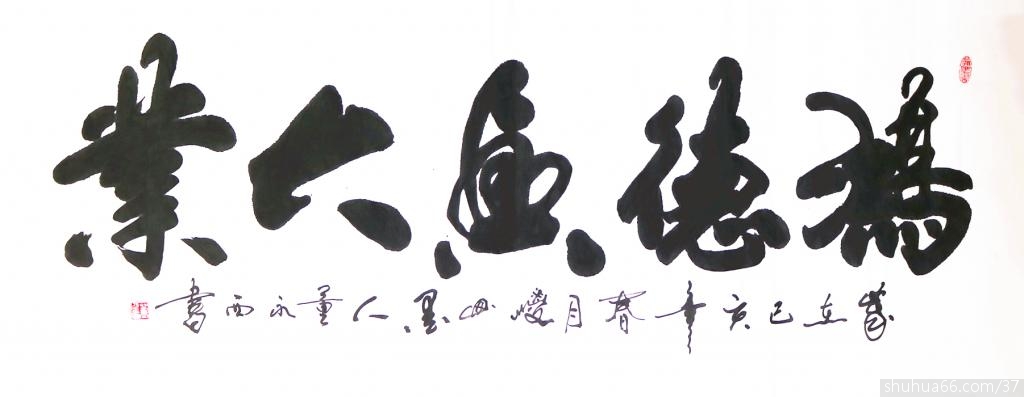 德興大業
歲在己亥年春月墨人董永西書
shuhua66.com/37